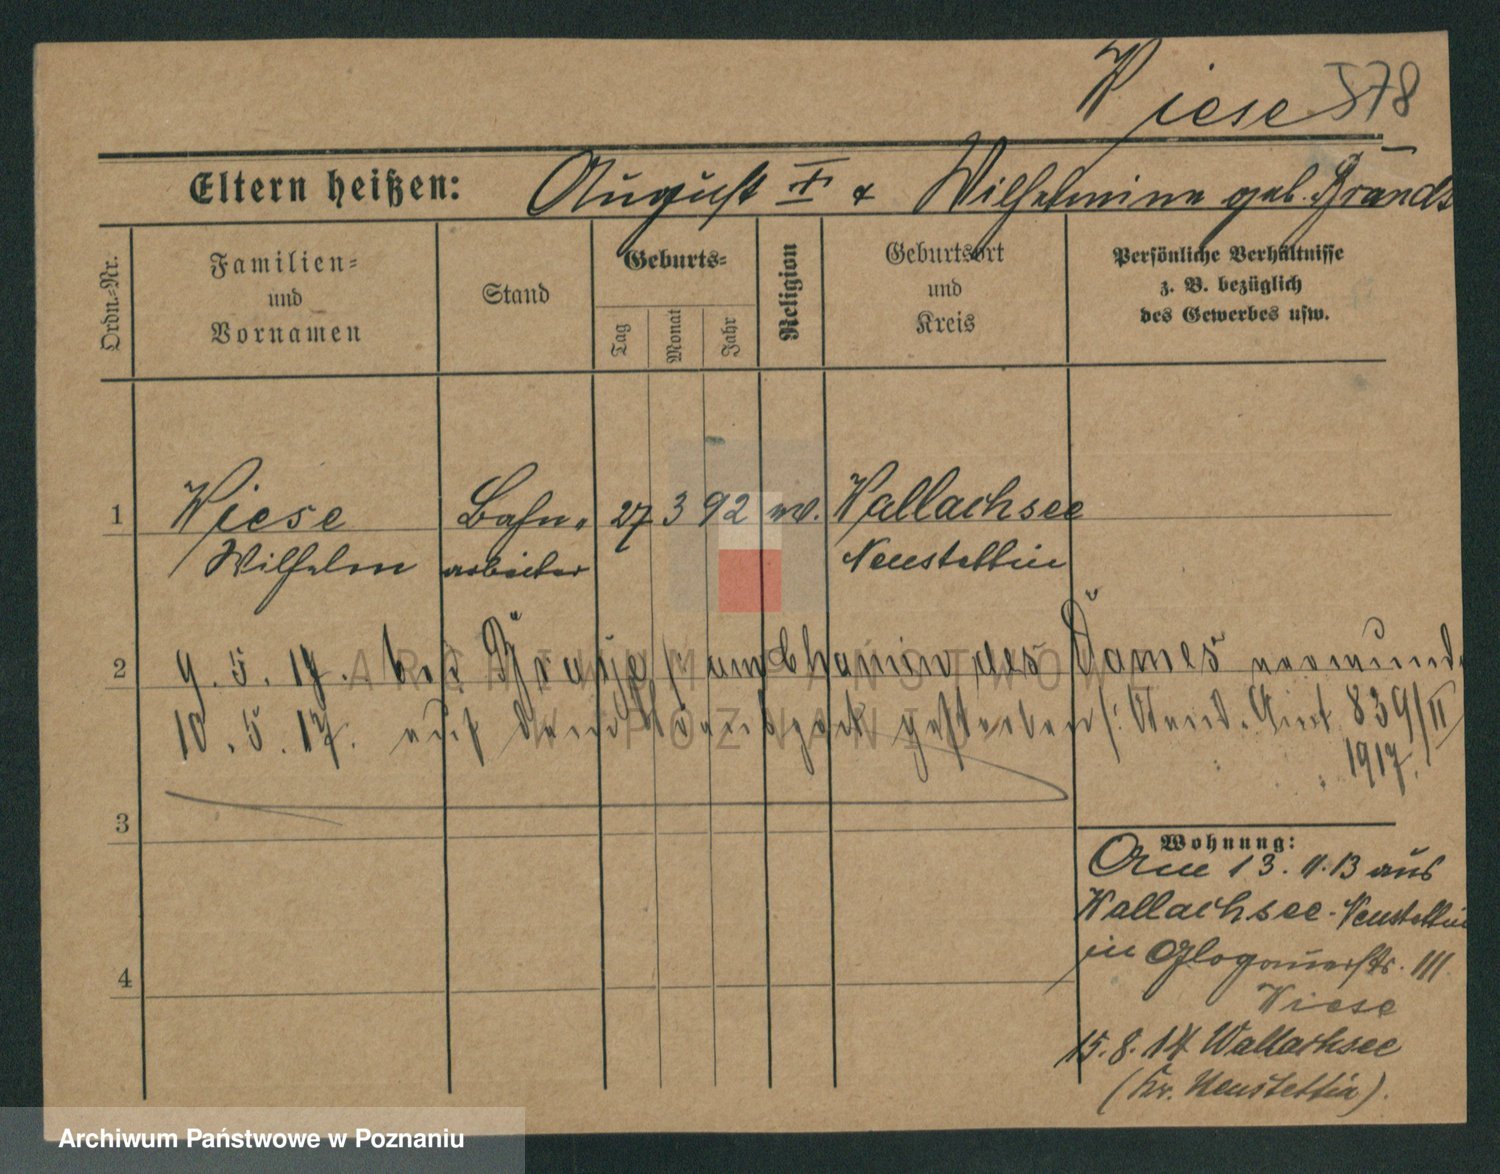 Wiese 578
Eltern heißen: August † & Wilhelmine geb. Brandt
Ordn.=Nr.
Familien=
und
Vornamen
Stand
Geburts=
Tag
Monat
Jahr
Religion
Geburtsort
und
Kreis
Persönliche Verhältnisse
z. B. bezüglich
des Gewerbes usw.
1 Wiese Bahn- 27 3 92 ev. Wallachsee
Wilhelm arbeiter Neustettin
2 9. 5. 17. bei des verwund.
10. 5. 17. auf dem gestorben Stand. Amt 839/II
1917.
3
4
Wohnung:
Am 13. 11. 13 aus
Wallachsee-Neustettin
in Glogauerstr. 111
Wiese
15. 8. 14 Wallachsee
(Kr. Neustettin).
ARCHIWUM PAŃSTWOWE
W POZNANIU
Archiwum Państwowe w Poznaniu